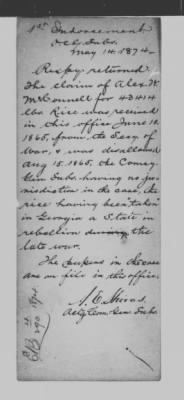 1st Endorsement
Och Subs.
May 14. 1874.
Respy returned
The claim of Alex. W
McConnell for 42414
lbs Rice was received
in this office June 10.
1865, from the Secy of
War, & was disallowed
Aug 15. 1865, the Comsy.
Genl Subs. having no ju-
risdiction in the case, the
rice having been taken
in Georgia a State in
rebellion during the
late war.
The papers in the case
are on file in this office.
A. E. Shiras,
Actg Com. Gen Subs.
1874.
290